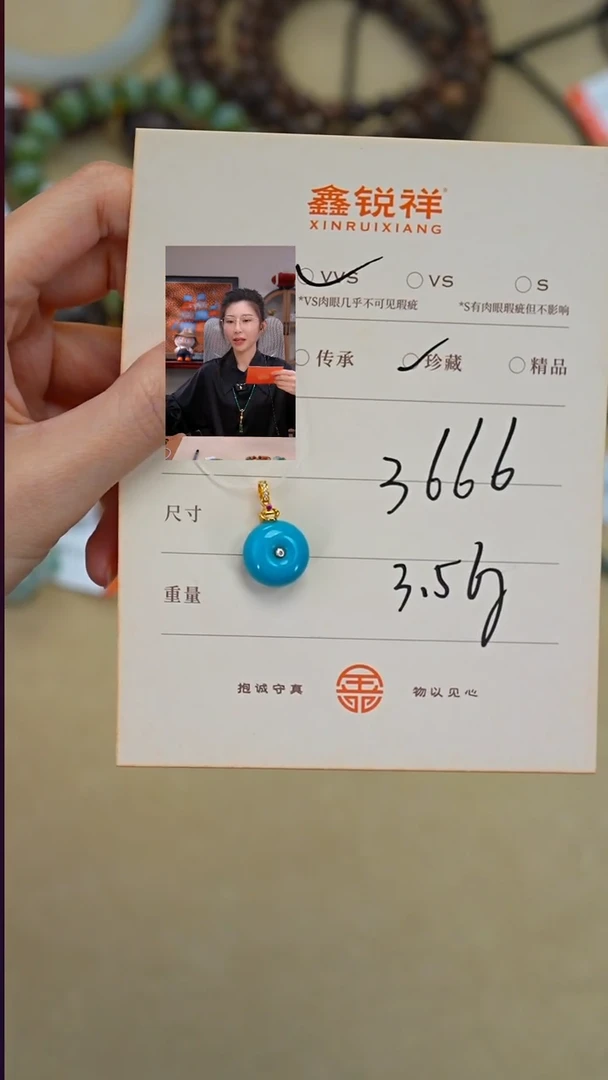 鑫锐祥
XINRUIXIANG
VVS VS S
*VS肉眼几乎不可见瑕疵 *S有肉眼瑕疵但不影响
传承 珍藏 精品
3666
尺寸
重量 3.56g
抱诚守真 物以见心